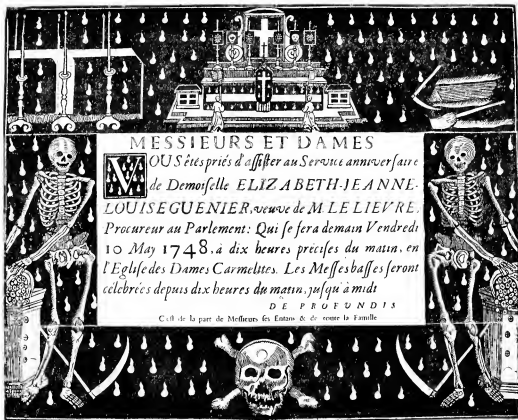 MESSIEURS ET DAMES
VOUS êtes priés d'assister au Service anniversaire
de Demoiselle ELIZABETH-JEANNE-
LOUISE GUENIER, veuve de M. LE LIEVRE,
Procureur au Parlement: Qui se fera demain Vendredi
10 May 1748, à dix heures précises du matin, en
l'Eglise des Dames Carmelites. Les Messes basses seront
célébrées depuis dix heures du matin, jusqu'à midi
DE PROFUNDIS
C'est de la part de Messieurs ses Enfans & de toute la Famille